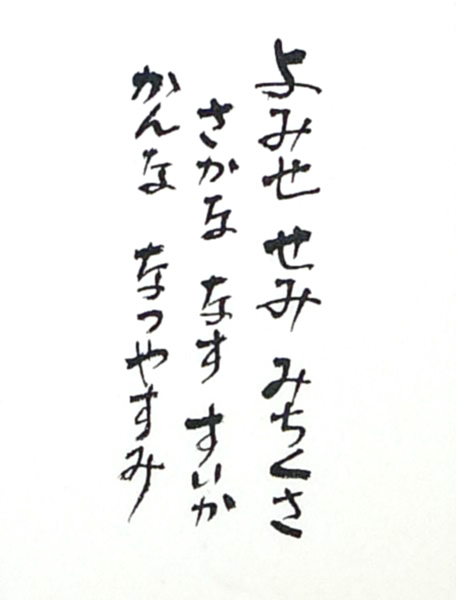 よみせ せみ みちくさ
さかな なす すいか
かんな なつやすみ